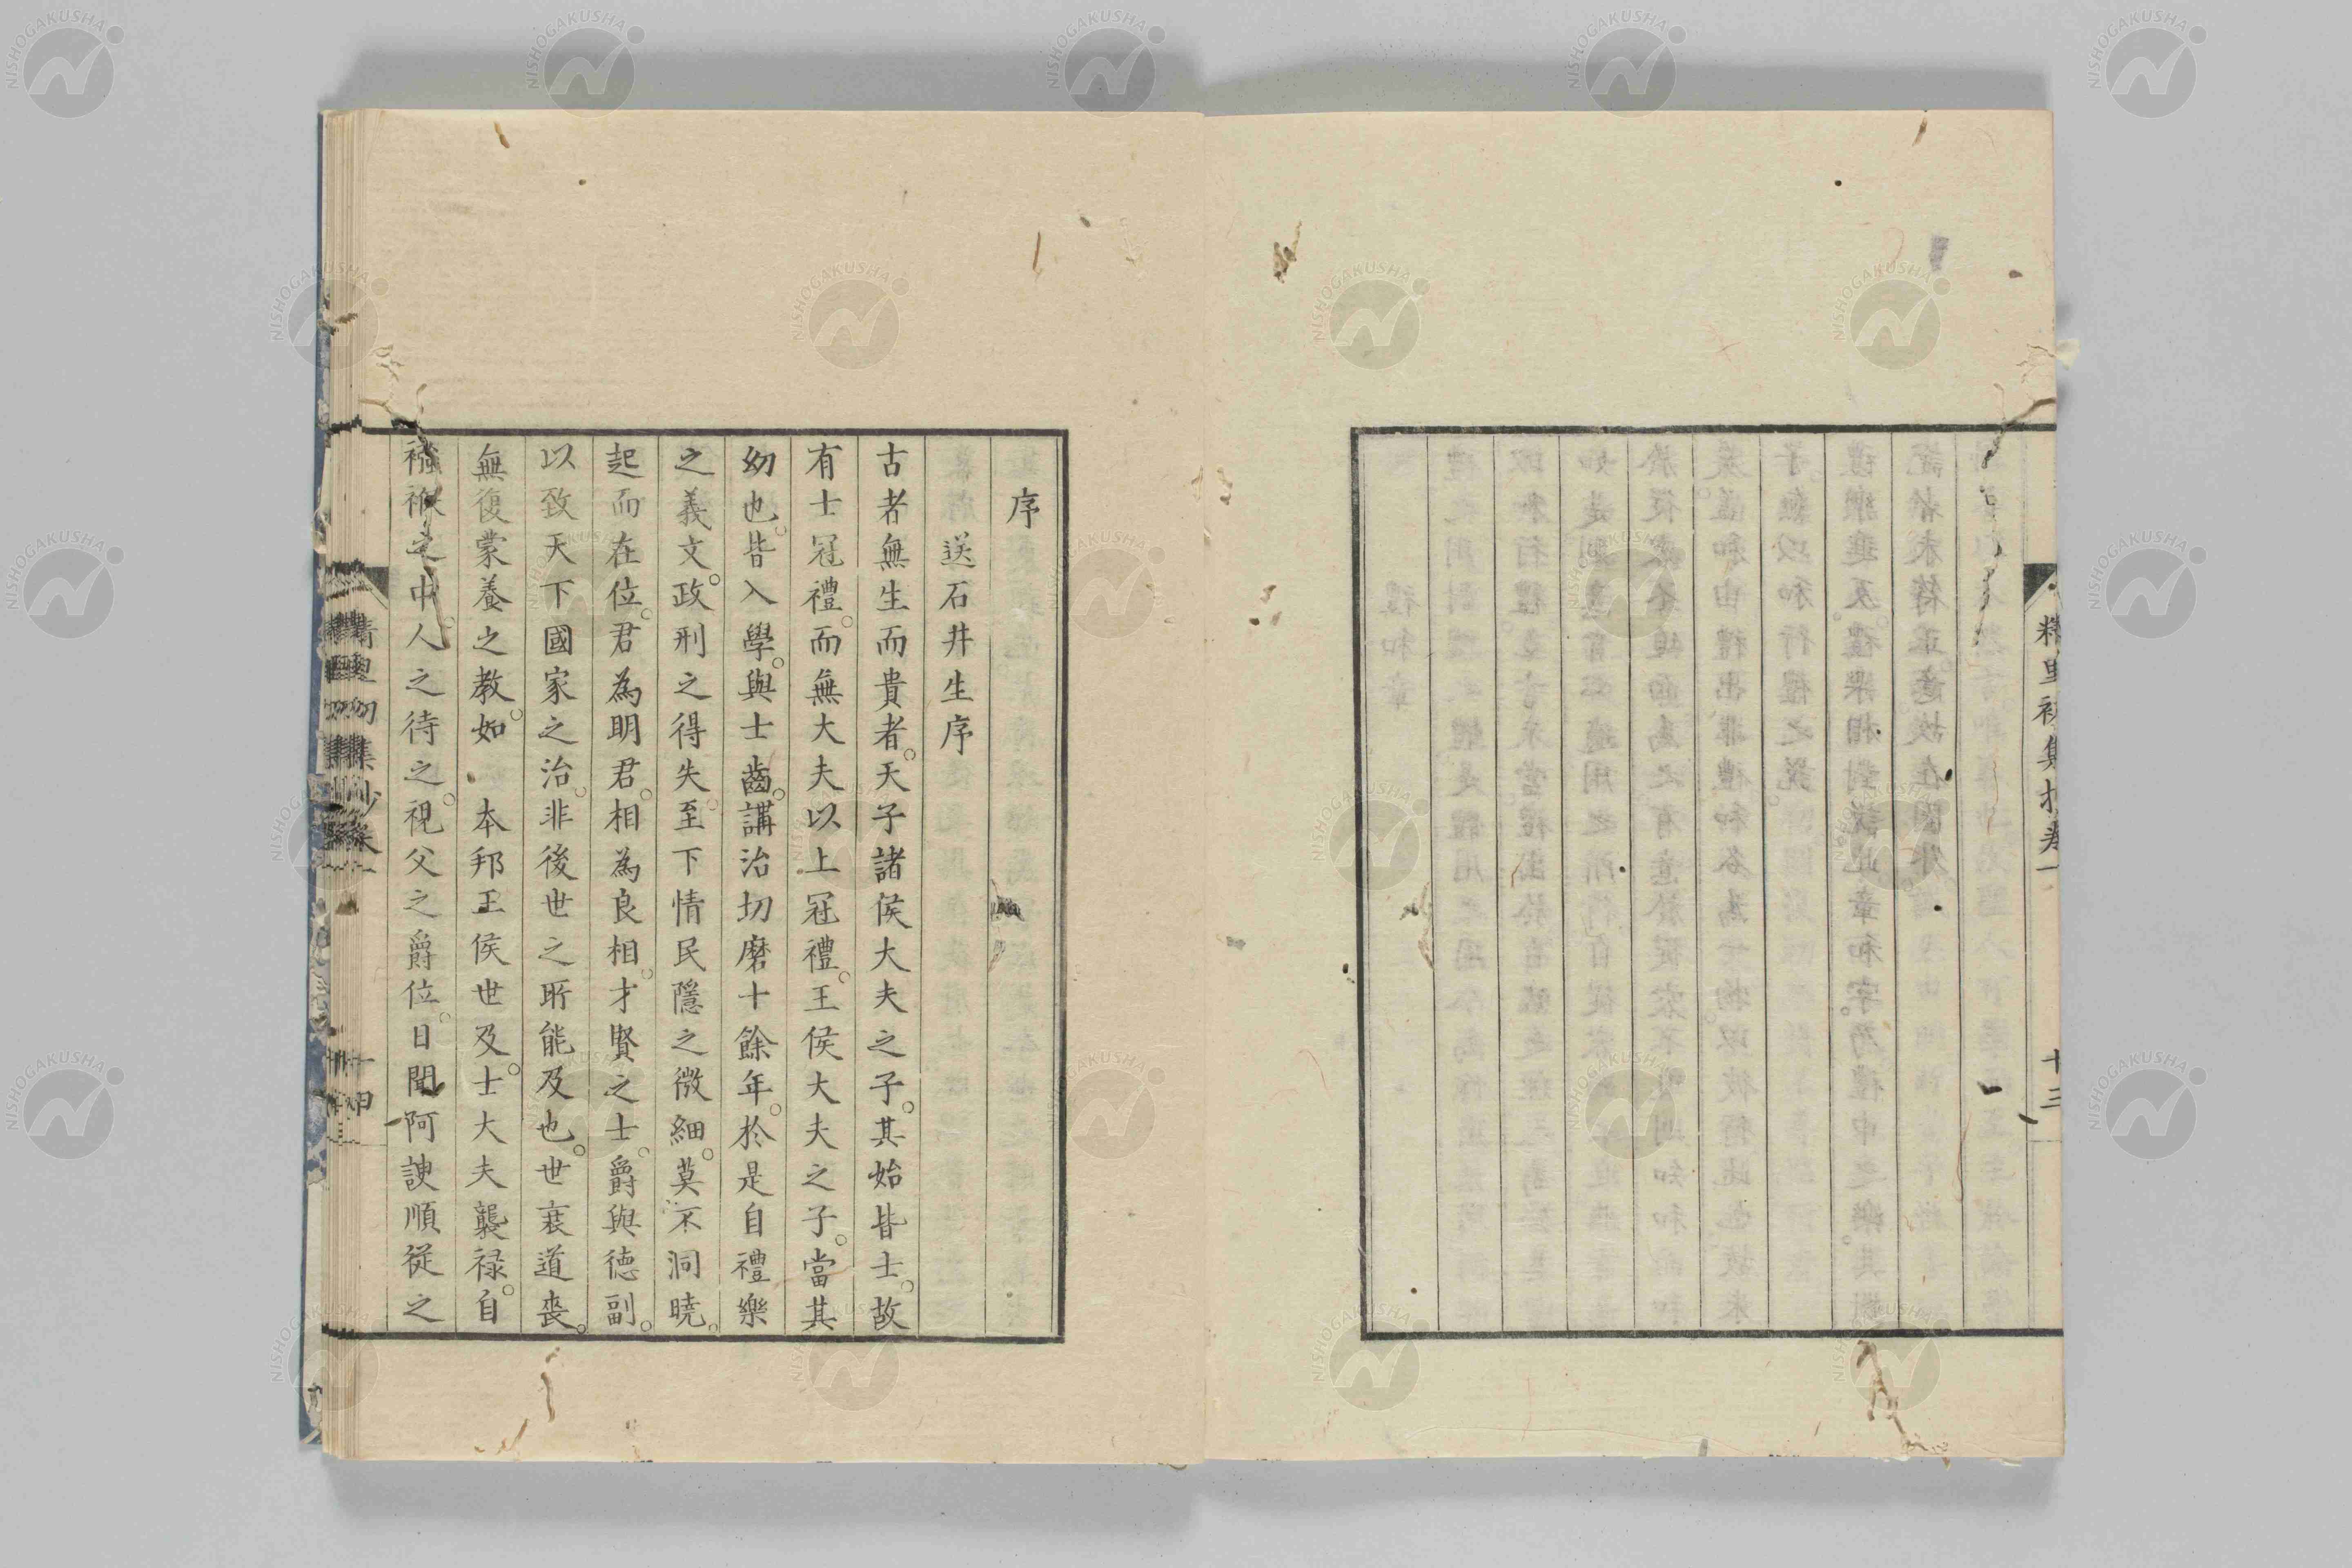 精里初集抄卷一
十三
序
送石井生序
古者無生而貴者。天子諸侯大夫之子。其始皆士。故
有士冠禮。而無大夫以上冠禮。王侯大夫之子。當其
幼也。皆入學。與士齒。講治切磨十餘年。於是自禮樂
之義文。政刑之得失。至下情民隱之微細。莫不洞曉。
起而在位。君為明君。相為良相。才賢之士。爵與德副。
以致天下國家之治。非後世之所能及也。世衰道喪。
無復蒙養之教。如 本邦王侯世及。士大夫襲祿。自
襁褓之中。人之待之。視父之爵位。日聞阿諛順從之
十四
NISHOGAKUSHA